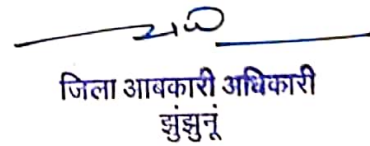 जिला आबकारी अधिकारी
झुंझुनूं